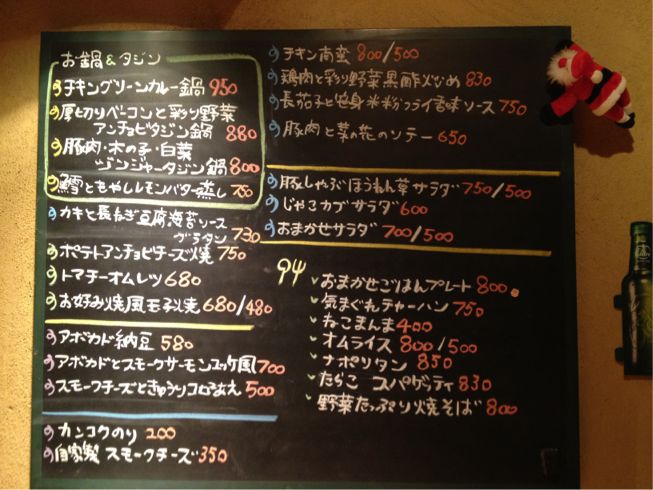 お鍋&タジン
チキングリーンカレー鍋 950
厚切りベーコンと彩り野菜
アンチョビタジン鍋 880
豚肉・木の子・白菜
ジンジャータジン鍋 800
鱈ともやしレモンバター蒸し 750
カキと長ねぎ豆腐海苔ソース
グラタン 730
ポテトアンチョビチーズ焼 750
トマチーオムレツ 680
お好み焼風玉子焼 680/480
アボカド納豆 580
アボカドとスモークサーモンユッケ風 700
スモークチーズときゅうりコロあえ 500
カンコクのり 200
自家製 スモークチーズ 350
チキン南蛮 800/500
鶏肉と彩り野菜黒酢炒め 830
長茄子と笹身米粉フライ香味ソース 750
豚肉と菜の花のソテー 650
豚しゃぶほうれん草サラダ 750/500
じゃこカブサラダ 600
おまかせサラダ 700/500
おまかせごはんプレート 800
気まぐれチャーハン 750
ねこまんま 400
オムライス 800/500
ナポリタン 850
たらこ スパゲッティ 830
野菜たっぷり焼そば 800